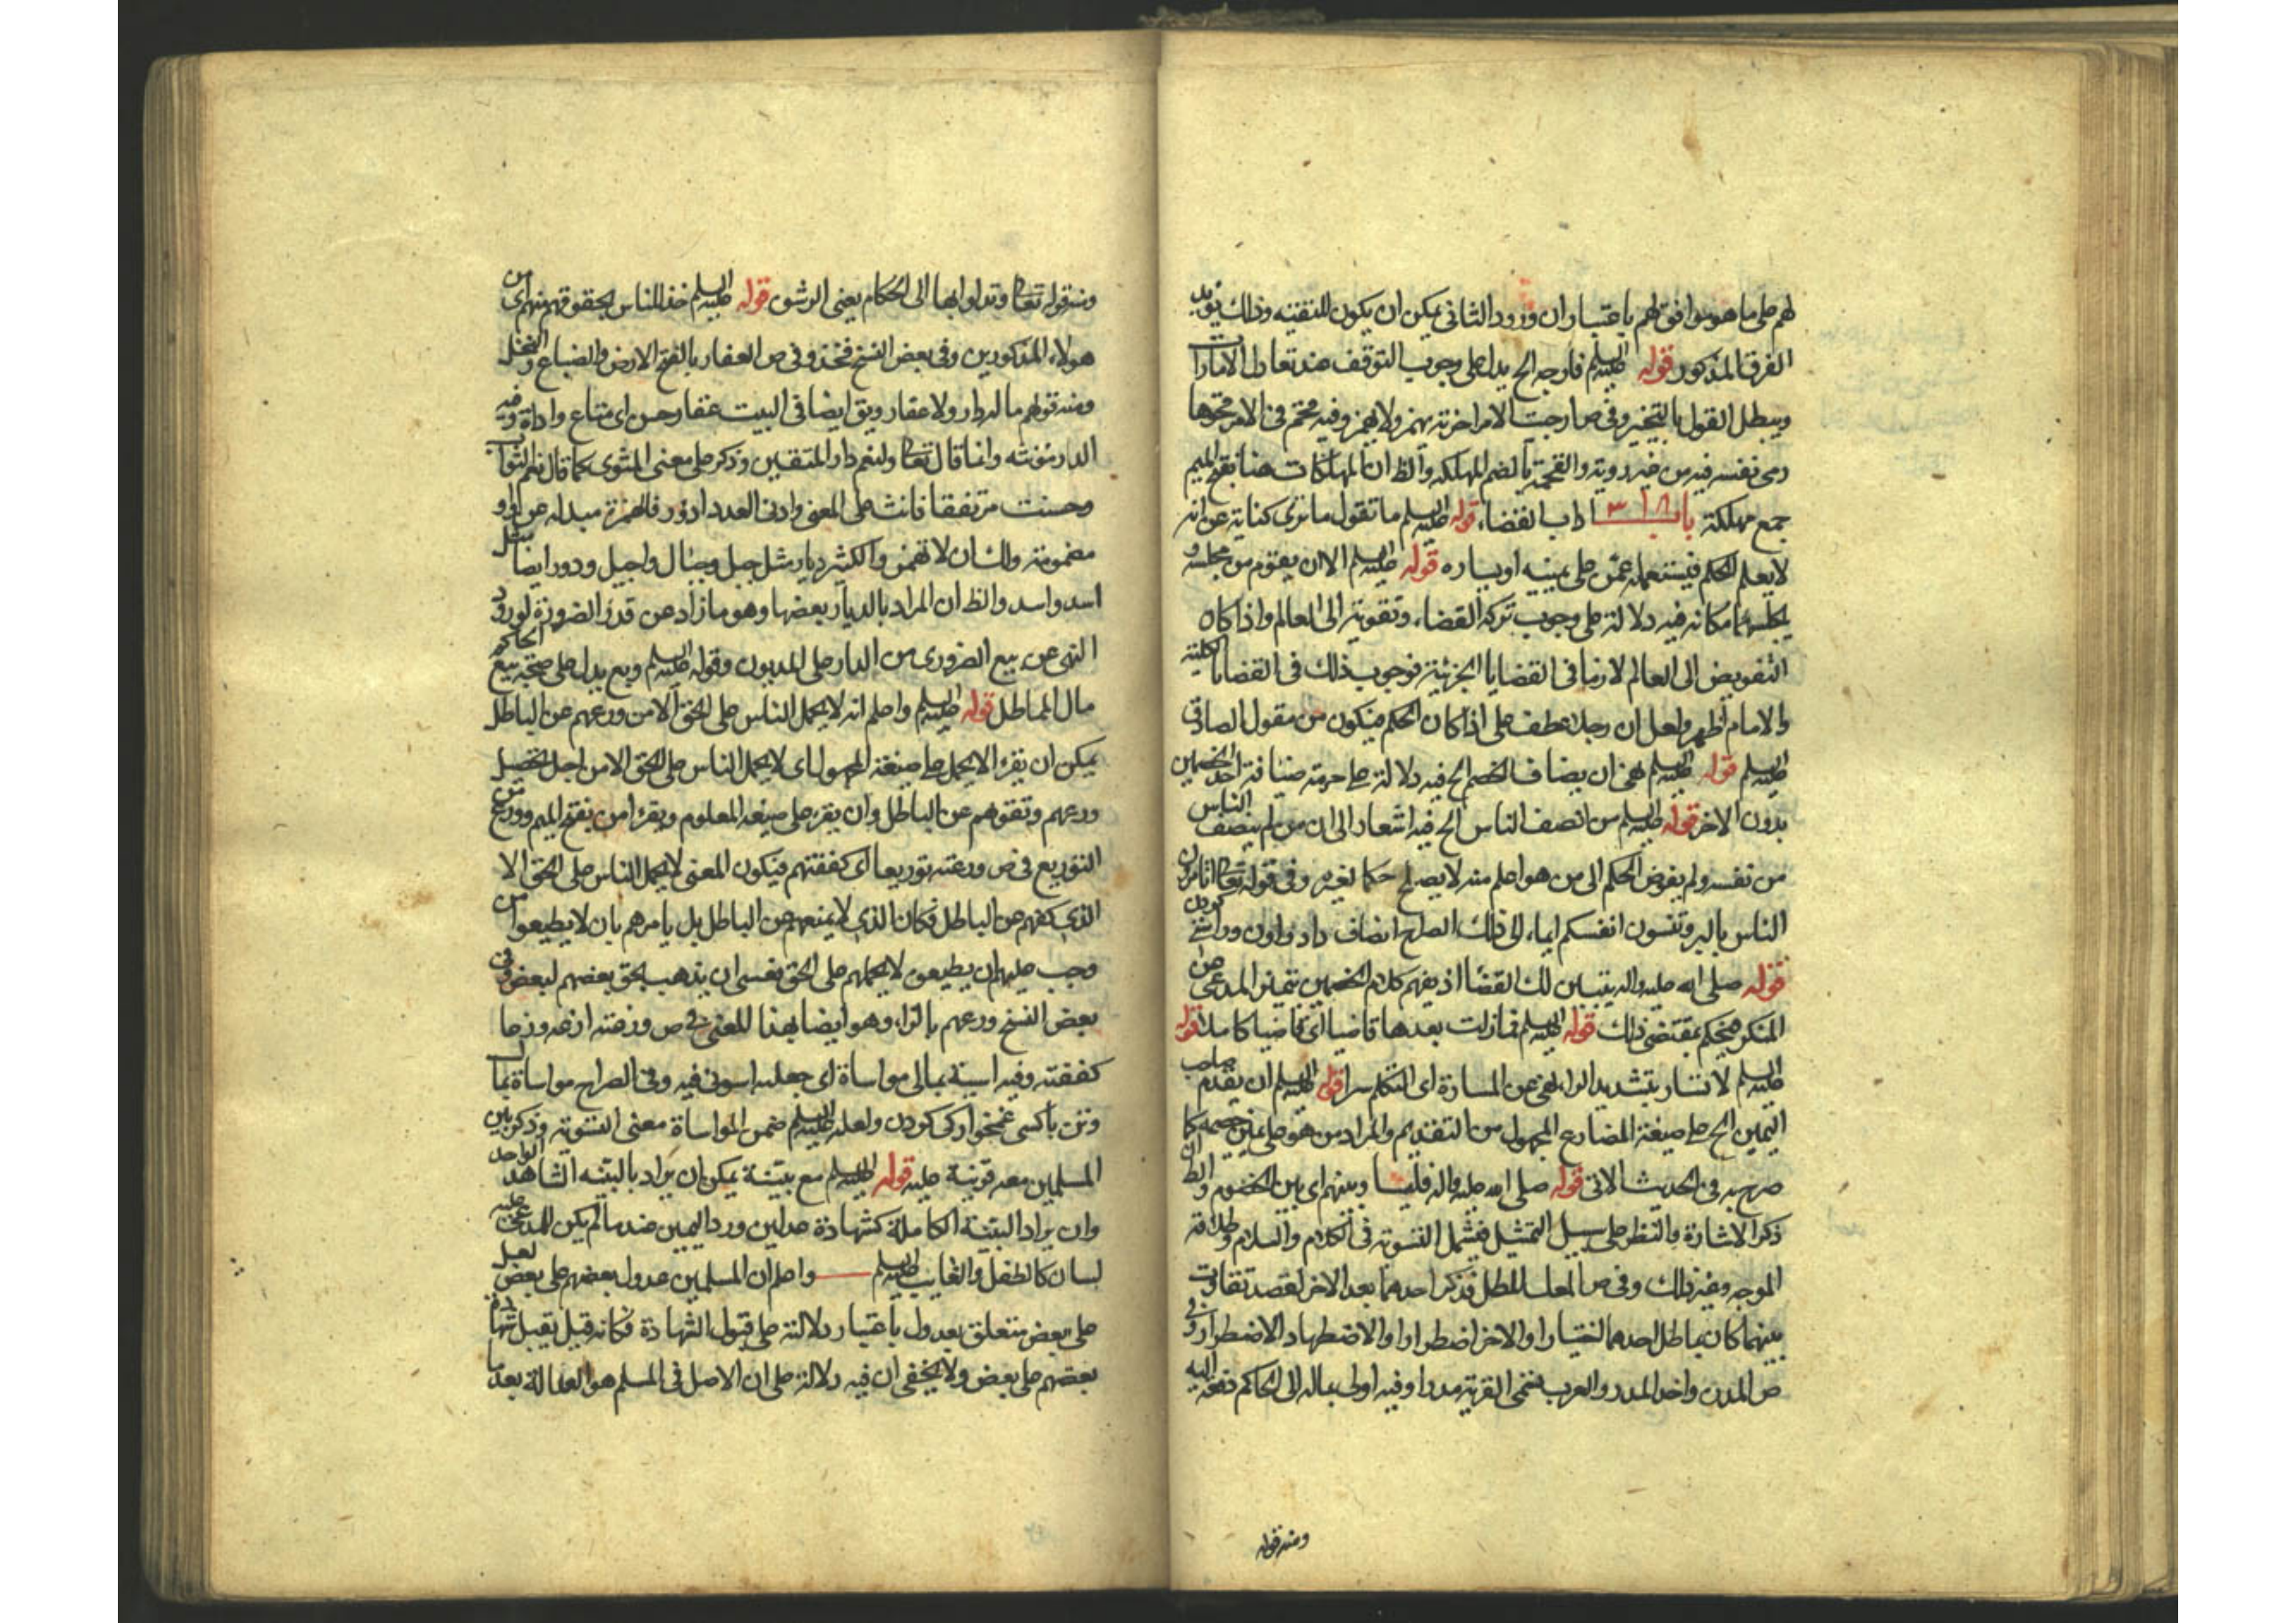 لهم على ما هو موافق لهم باعتبار ان ورود الثانى يمكن ان يكون للتقيه وذلك يؤيد
الفرق المذكور قوله عليه السلم فارجه الخ يدل على وجوب التوقف عند تعادل الامارات
ويبطل القول بالتخيير وفى ص ارجت الامر اخرته يهمز ولا يهمز وفيه قحم فى الامر قحوما
رمى نفسه فيه من غير روية والقحمة بالضم المهلكه والظ ان المهلكات هنا بفتح الميم
جمع مهلكة باب ٣١٨ اداب القضاء قوله عليه السلم ما تقول ما ترى كناية عن انه
لا يعلم الحكم فيستعمله عمن على يمينه او يساره قوله عليه السلم الا ان يقوم من مجلسه و
يجلسهما مكانه فيه دلالة على وجوب تركه القضاء وتفويته الى العالم واذا كان
التفويض الى العالم لازما فى القضايا الجزئية فوجوب ذلك فى القضايا الكلية
والامام اظهر ولعل ان رجلا عطف على اذا كان الحكم فيكون من مقول الصادق
عليه السلم قوله عليه السلم نهى ان يضاف الخصم الخ فيه دلالة على حرمة ضيافة احد الخصمين
بدون الاخر قوله عليه السلم من انصف الناس الخ فيه اشعار الى ان من لم ينصف الناس
من نفسه ولم يفوض الحكم الى من هو اعلم منه لا يصلح حكما لغيره وفى قوله تعالى اتامرون
الناس بالبر وتنسون انفسكم ايماء الى ذلك الصراح انصاف داد دادن وراستى كردن
قوله صلى الله عليه واله يتبين لك القضا اذ بفهم كلام الخصمين يتميز المدعى من
المنكر فيحكم بمقتضى ذلك قوله عليه السلم فما زلت بعدها قاضيا اى قاضيا كاملا قوله
عليه السلم لا تسار بتشديد الراء نهى عن المسارة اى التكلم سرا قوله عليه السلم ان يقدم صاحب
اليمين الخ على صيغة المضارع المجهول من التقديم والمراد من هو على يمين خصمه كما
صرح به فى الحديث الاتى قوله صلى الله عليه واله فليسا وبينهم اى بين الخصوم والظ ان
ذكر الاشارة والنظر على سبيل التمثيل فيشمل التسوية فى الكلام والسلام وطلاقة
الوجه وغير ذلك وفى ص المعك المطل فذكر احدهما بعد الاخر لقصد تفاوت
بينهما كان يماطل احدهما اختيارا والاخر اضطرارا والاضطهاد الاضطرار وفى
ص المدن واحد المدر والعرب تسمى القرية مدرا وفيه ادلى بماله الى الحاكم دفعه اليه
ومنه قوله
ومنه قوله تعالى وتدلوا بها الى الحكام يعنى الرشوة قوله عليه السلم خذ للناس بحقوقهم منهم اى من
هولاء المذكورين وفى بعض النسخ فخذ وفى ص العقار بالفتح الارض والضياع والنخل
ومنه قولهم ما له دار ولا عقار ويق ايضا فى البيت عقار حسن اى متاع واداة وفيه
الدار مؤنثه وانما قال تعالى ولنعم دار المتقين وذكر على معنى المثوى كما قال نعم الثواب
وحسنت مرتفقا فانث على المعنى وادنى العدد ادؤر فالهمزة مبدله عن الواو
مضمومة ولك ان لا تهمز والكثير ديار مثل جبل وجبال واجبل ودور ايضا مثل
اسد واسد والظ ان المراد بالديار بعضها وهو ما زاد عن قدر الضرورة لورود
النهى عن بيع الضرورى من الدار على المديون وقوله عليه السلم وبع يدل على صحة بيع الحاكم
مال المماطل قوله عليه السلم واعلم انه لا يحمل الناس على الحق الا من ورعهم عن الباطل
يمكن ان يقرء الا يحمل على صيغة المجهول اى لا يحمل الناس على الحق الا من اجل تحصيل
ورعهم وتفقههم عن الباطل وان يقرء على صيغه المعلوم ويقرء من بفتح الميم وورع من
التوريع فى ص ورعته توريعا اى كففته فيكون المعنى لا يحمل الناس على الحق الا
الذى كفهم عن الباطل فكان الذى لا يمنعهم عن الباطل بل يامرهم بان لا يطيعوا من
وجب عليهم ان يطيعوه لا يحملهم على الحق فعسى ان يذهب بحق بعضهم لبعض وفى
بعض النسخ وزعهم بالزاء وهو ايضا بهذا المعنى فى ص وزعته ازعه وزعا
كففته وفيه اسيته بمالى مواساة اى جعلته اسوتى فيه وفى الصراح مواساة بمال
وتن با كسى غمخوارگى كردن ولعله عليه السلم ضمن المواساة معنى التسوية وذكر بين
المسلمين معه قرينة عليه قوله عليه السلم مع بينة يمكن ان يراد بالبينه الشاهد الواحد
وان يراد البينة الكاملة كشهادة عدلين ورد اليمين عندما لم يكن للمدعى عليه
لسان كالطفل والغايب عليه السلم واعلم ان المسلمين عدول بعضهم على بعض لعل
على بعض متعلق بعدول باعتبار دلالته على قبول الشهادة فكانه قيل يقبل شهادة
بعضهم على بعض ولا يخفى ان فيه دلالة على ان الاصل فى المسلم هو العدالة بعد ما